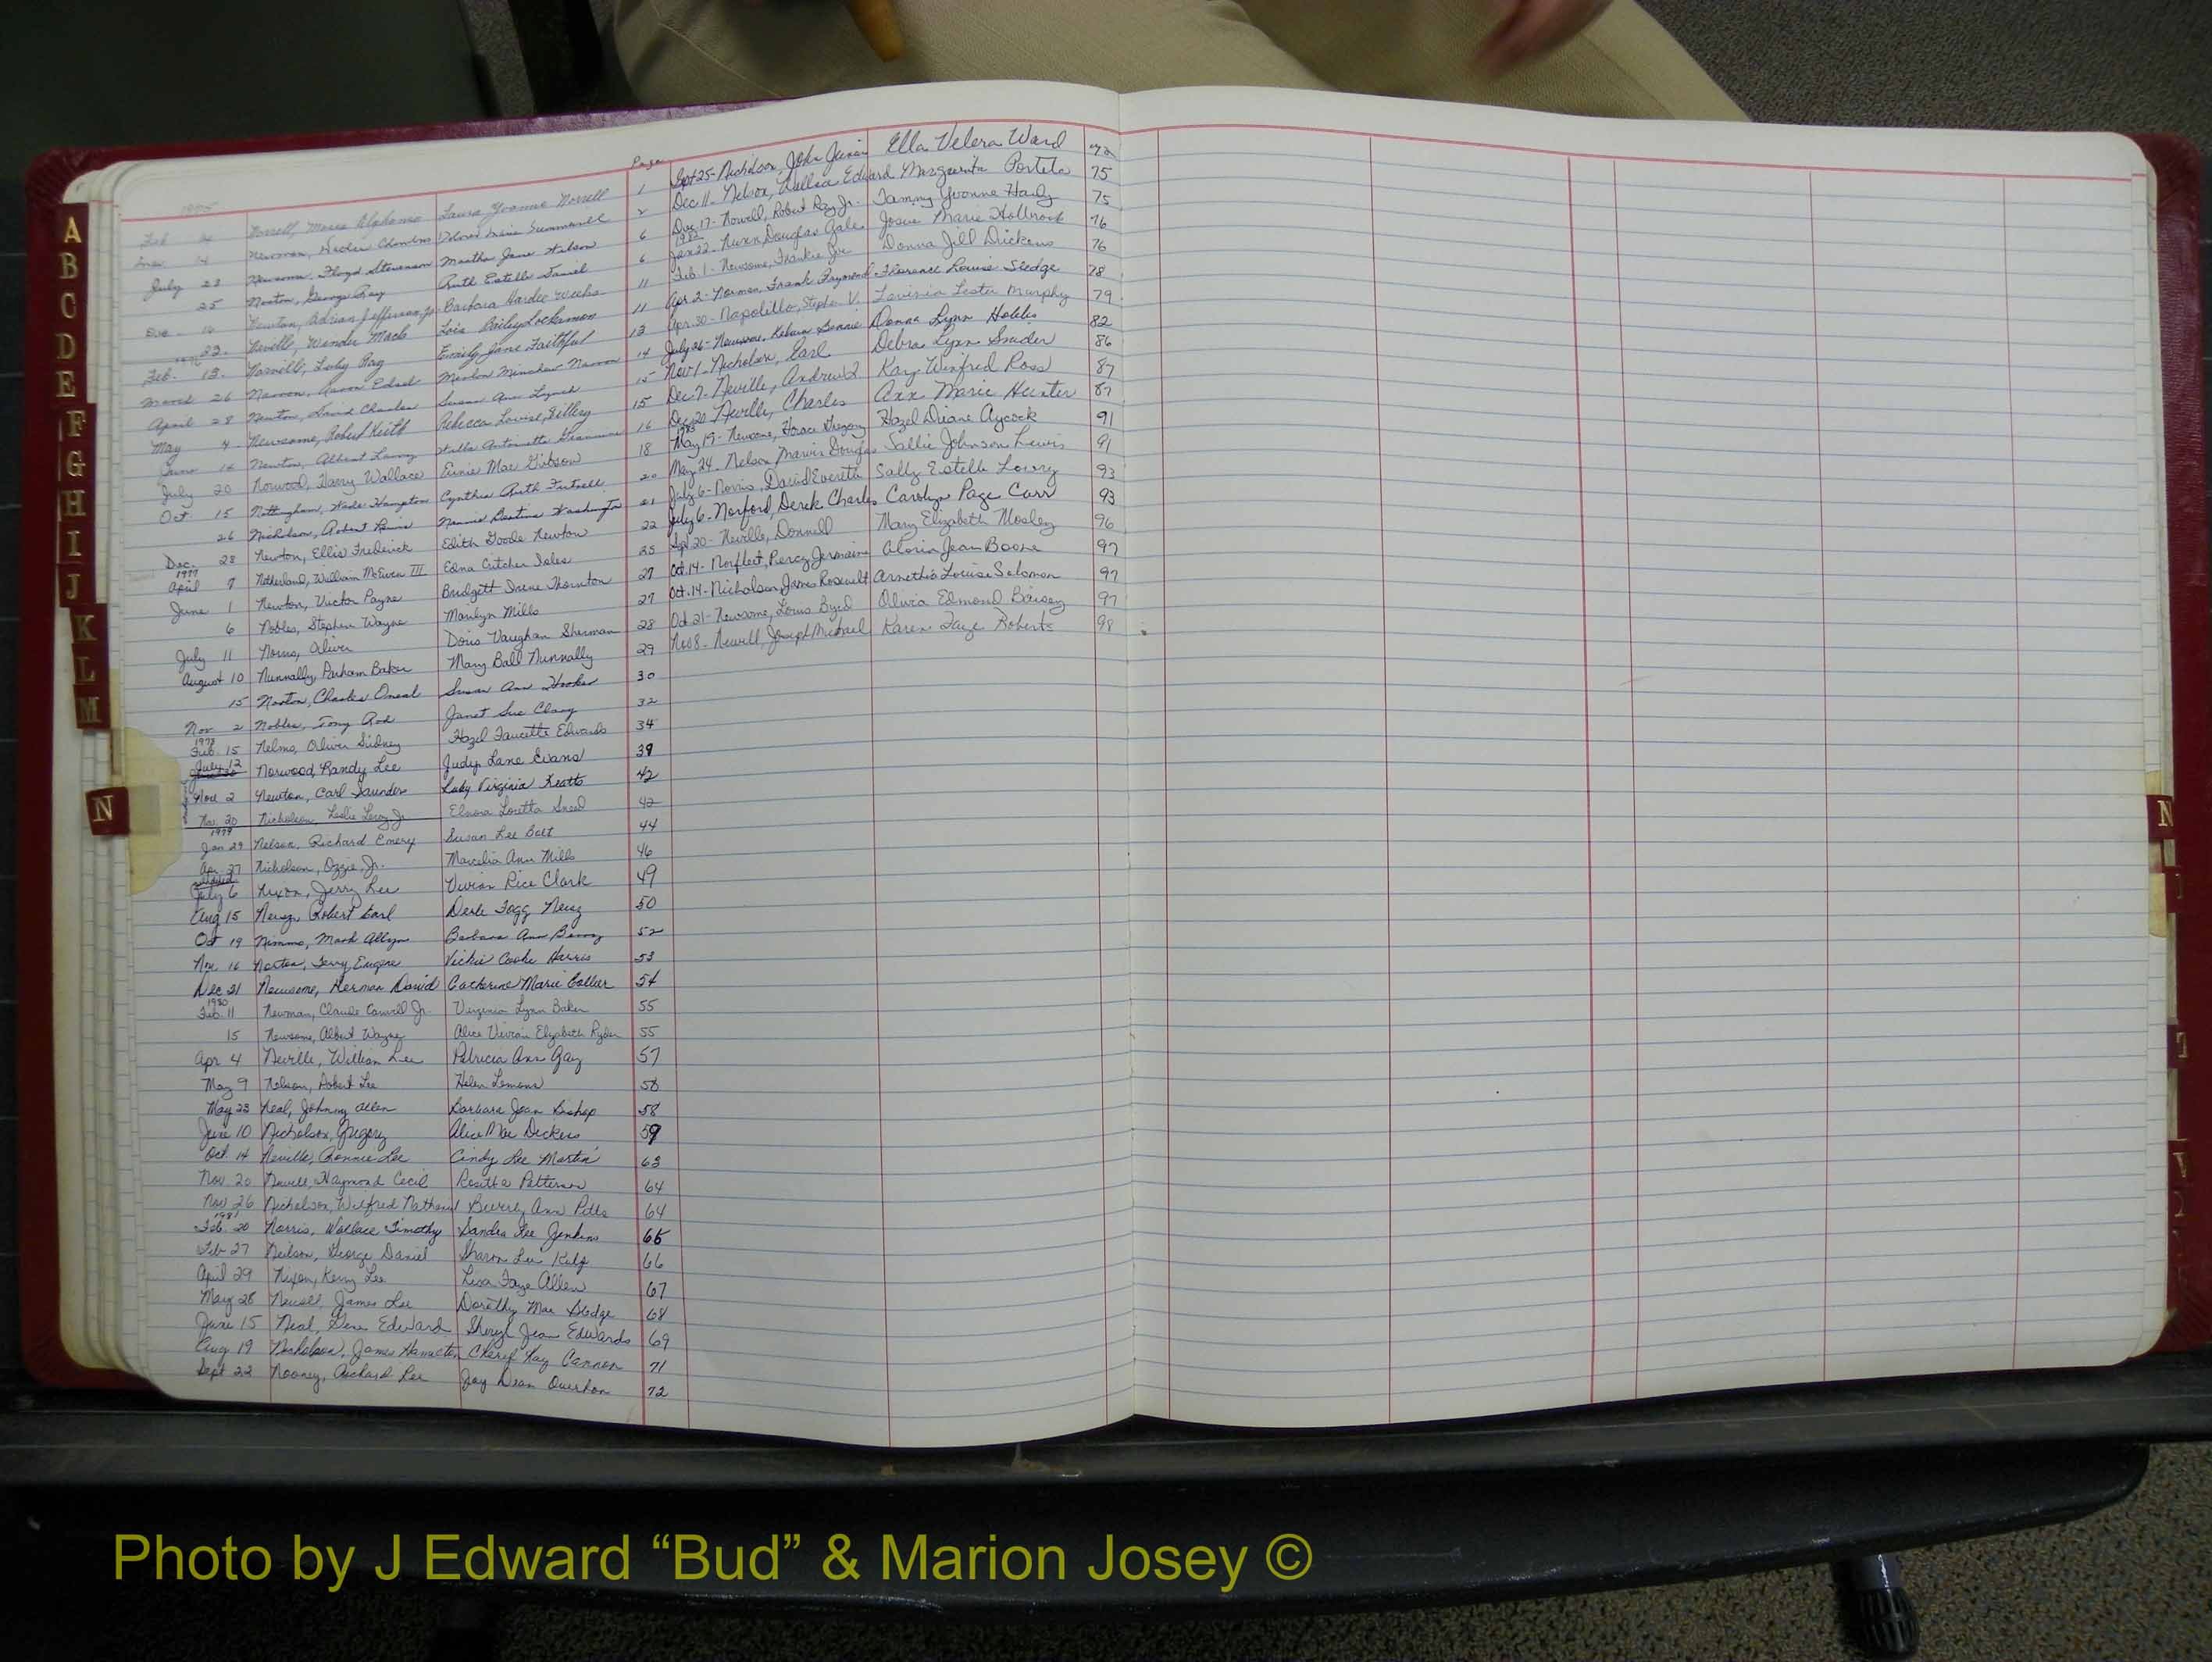 A
B
C
D
E
F
G
H
I
J
K
L
M
N
Page
1975
Feb Norrell, Moses Alphonso Laura Yvonne Norrell 1
Newman, Chambers Delores Summerell 2
July 23 Newsome, Floyd Stevenson Martha Jane 6
25 Norton, George Ray Ruth Estelle Daniel 6
16 Newton, Adrian Jefferson Jr. Barbara Hardee Weeks 11
22 Neville, Wender Mack Lois Bailey Lockamon 11
1976
Feb. 13 Ray Emily Jane Faithful 13
March 26 Aaron 14
April 28 Newton, David Charles Susan Ann Lynch 15
May 4 Newsome, Robert Keith Rebecca Louise 15
June 16 Newton, Albert Antoinette 16
July 20 Norwood, Danny Wallace Eunice Mae Gibson 18
Oct 15 Nottingham, Wade Hampton Cynthia Ruth Futrell 20
26 Nicholson, Robert Washington 21
Dec. 28 Newton, Ellis Frederick Edith Goode Newton 22
1977
April 7 Netherland, William McEwen III Edna Critcher Isles 25
June 1 Newton, Victor Payne Bridgett Irene Thornton 27
6 Nobles, Stephen Wayne Marilyn Mills 27
July 11 Norris, Oliver Doris Vaughan Sherman 28
August 10 Nunnally, Parham Baker Mary Ball Nunnally 29
15 Norton, Charles Oneal Susan Ann Hooker 30
Nov 2 Nobles, Tony Susan Janet Sue Clary 32
1978
Feb. 15 Nelms, Oliver Sidney Hazel Faucette Edwards 34
July 12 Norwood, Randy Lee Judy Lane Evans 39
Nov 2 Newton, Carl Saunders Lady Virginia Keatts 42
Nov. 20 Nicholson, Leslie Leroy Jr Elnora Loretta Sneed 42
1979
Jan 29 Nelson, Richard Emery Susan Lee Batt 44
Apr. 27 Nicholson, Ozzie, Jr. Marcelia Ann Mills 46
July 6 Nixon, Jerry Lee Vivian Rice Clark 49
Aug 15 Robert Earl Fogg 50
Oct 19 Nimmo, Mark Allyn Barbara Ann 52
Nov. 16 Norton, Terry Eugene Vickie Cooke Harris 53
Dec 21 Newsome, Herman David Catherine Marie Collier 54
1980
Feb. 11 Newman, Claude Jr. Virginia Lynn Baker 55
15 Newsome, Albert Wayne Alice Vivian Elizabeth Ryder 55
Apr 4 Neville, William Lee Patricia Ann Gay 57
May 9 Nelson, Robert Lee Helen Lemons 58
May 23 Neal, Johnny Allen Barbara Jean Bishop 58
June 10 Nicholson, Gregory Alice Mae Dickens 59
Oct. 14 Neville, Ronnie Lee Cindy Lee Martin 63
Nov. 20 Newell, Haymond Cecil Rosetta Patterson 64
Nov 26 Nicholson, Wilfred Nathaniel Beverly Ann Pitts 64
1981
Feb. 20 Norris, Wallace Timothy Sandra Lee Jenkins 65
Feb 27 Neilson, George Daniel Sharon Lee 66
April 29 Nixon, Kerry Lee Lisa Faye Allen 67
May 28 Newell, James Lee Dorothy Mae Sledge 68
June 15 Neal, Gene Edward Sheryl Jean Edwards 69
Aug 19 Nicholson, James Hamilton Cheryl Kay Cannon 71
Sept 22 Nooney, Richard Lee Joy Dean 72
Sept 25 - Nicholson, John Junior Ella Velera Ward 72
Dec 11 - Nelson, Edward Marguerita Portela 75
Dec 17 - Nowell, Robert Ray Jr. Tammy Yvonne 75
1982
Jan 22 - Nixon, Douglas Gale Josie Marie Holbrook 76
Feb. 1 - Newsome, Frankie Joe Donna Jill Dickens 76
Apr 2 - Norman, Frank Raymond Florence Louise Sledge 78
Apr. 30 - Napolillo, Stephen V. Lavinia Lester Murphy 79
July 26 - Newsome, Donna Lynn 82
Nov 1 - Nicholson, Earl Debra Lynn Snider 86
Dec-7 - Neville, Andrew Kay Winfred Ross 87
Dec 20 Neville, Charles Ann Marie Hunter 87
1983
May 19 - Newsome, Horace Gregory Hazel Diane Aycock 91
May 24 - Nelson, Marvin Douglas Sallie Johnson Lewis 91
July 6 - Norris, David Everette Sally Estelle Lowry 93
July 6 - Norford, Derek Charles Carolyn Page Carr 93
Sept 20 - Neville, Donnell Mary Elizabeth Mosley 96
Oct. 14 - Norfleet, Percy Jermaine Gloria Jean Boone 97
Oct. 14 - Nicholson, James Roosevelt Arnethia Louise Solomon 97
Oct 21 - Newsome, Louis Byrd Olivia Edmond 97
Nov 8 - Newell, Joseph Michael Karen Faye Roberts 98
N
Photo by J Edward “Bud” & Marion Josey ©